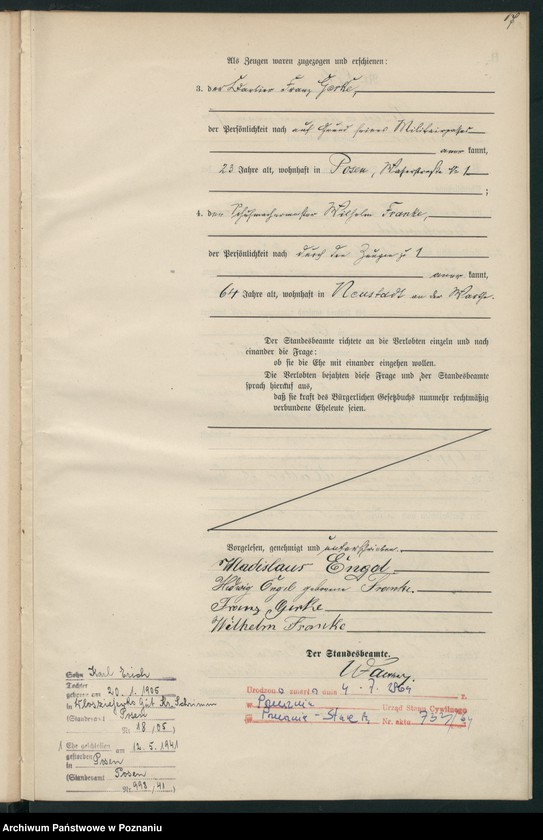 Als Zeugen waren zugezogen und erschienen:
3. der Barbier Franz Gerke,
der Persönlichkeit nach auf Grund seines Militairpasses
anerkannt,
23 Jahre alt, wohnhaft in Posen, Wasserstraße № 1
;
4. der Schuhmachermeister Wilhelm Franke,
der Persönlichkeit nach durch den Zeugen zu 1
anerkannt,
64 Jahre alt, wohnhaft in Neustadt an der Warthe.
Der Standesbeamte richtete an die Verlobten einzeln und nach
einander die Frage:
ob sie die Ehe mit einander eingehen wollen.
Die Verlobten bejahten diese Frage und der Standesbeamte
sprach hierauf aus,
daß sie kraft des Bürgerlichen Gesetzbuchs nunmehr rechtmäßig
verbundene Eheleute seien.
Vorgelesen, genehmigt und unterschrieben.
Wladislaus Engel.
Hedwig Engel geborene Franke.
Franz Gerke
Wilhelm Franke
Der Standesbeamte.
Sohn Karl Erich
Tochter
geboren am 20.1.1905
in Gut Kr. Schrimm
(Standesamt Posen
Nr. 18/05.)
1 Ehe geschlossen am 12.5.1941
gestorben
in Posen
(Standesamt Posen
Nr. 993/41.)
Urodzono zmarł dnia 4.7. r.
w Poznaniu Urząd Stanu Cywilnego
Poznań-Nr. aktu
Archiwum Państwowe w Poznaniu